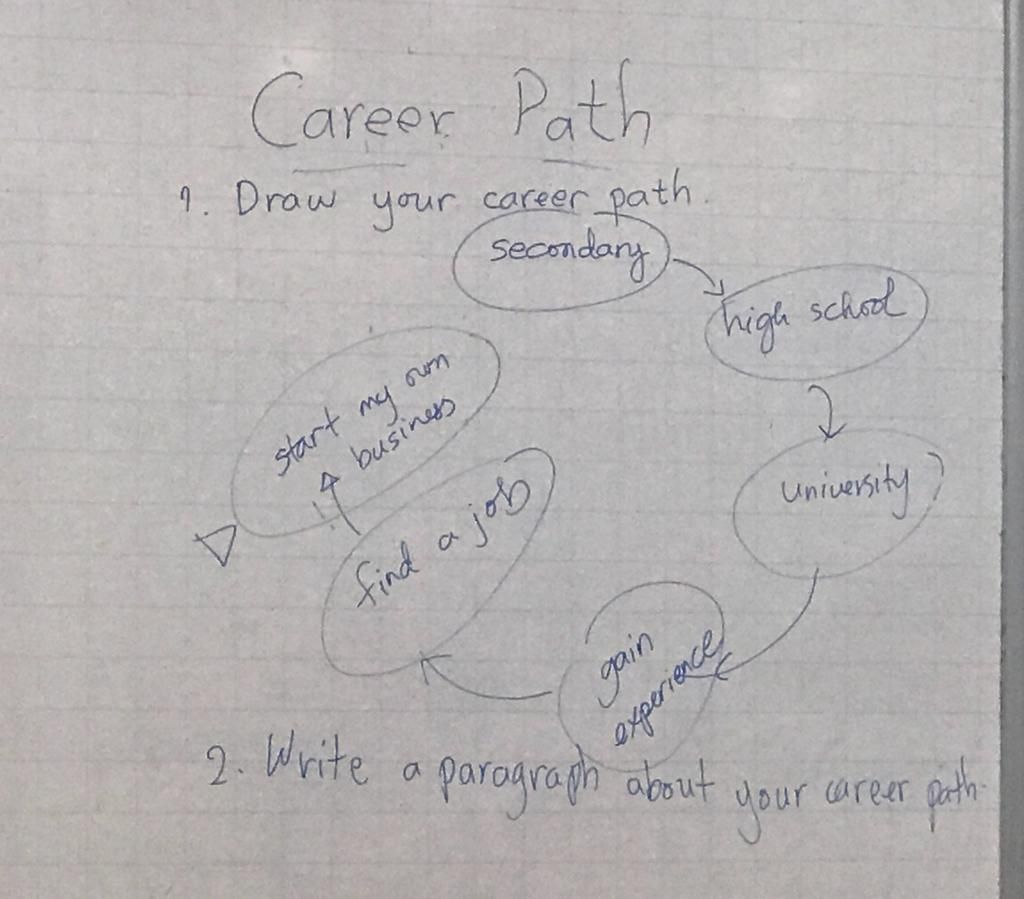 Career Path
1. Draw your career path.
secondary
high school
university
gain
experience
find a job
start my own
business
2. Write a paragraph about your career path.